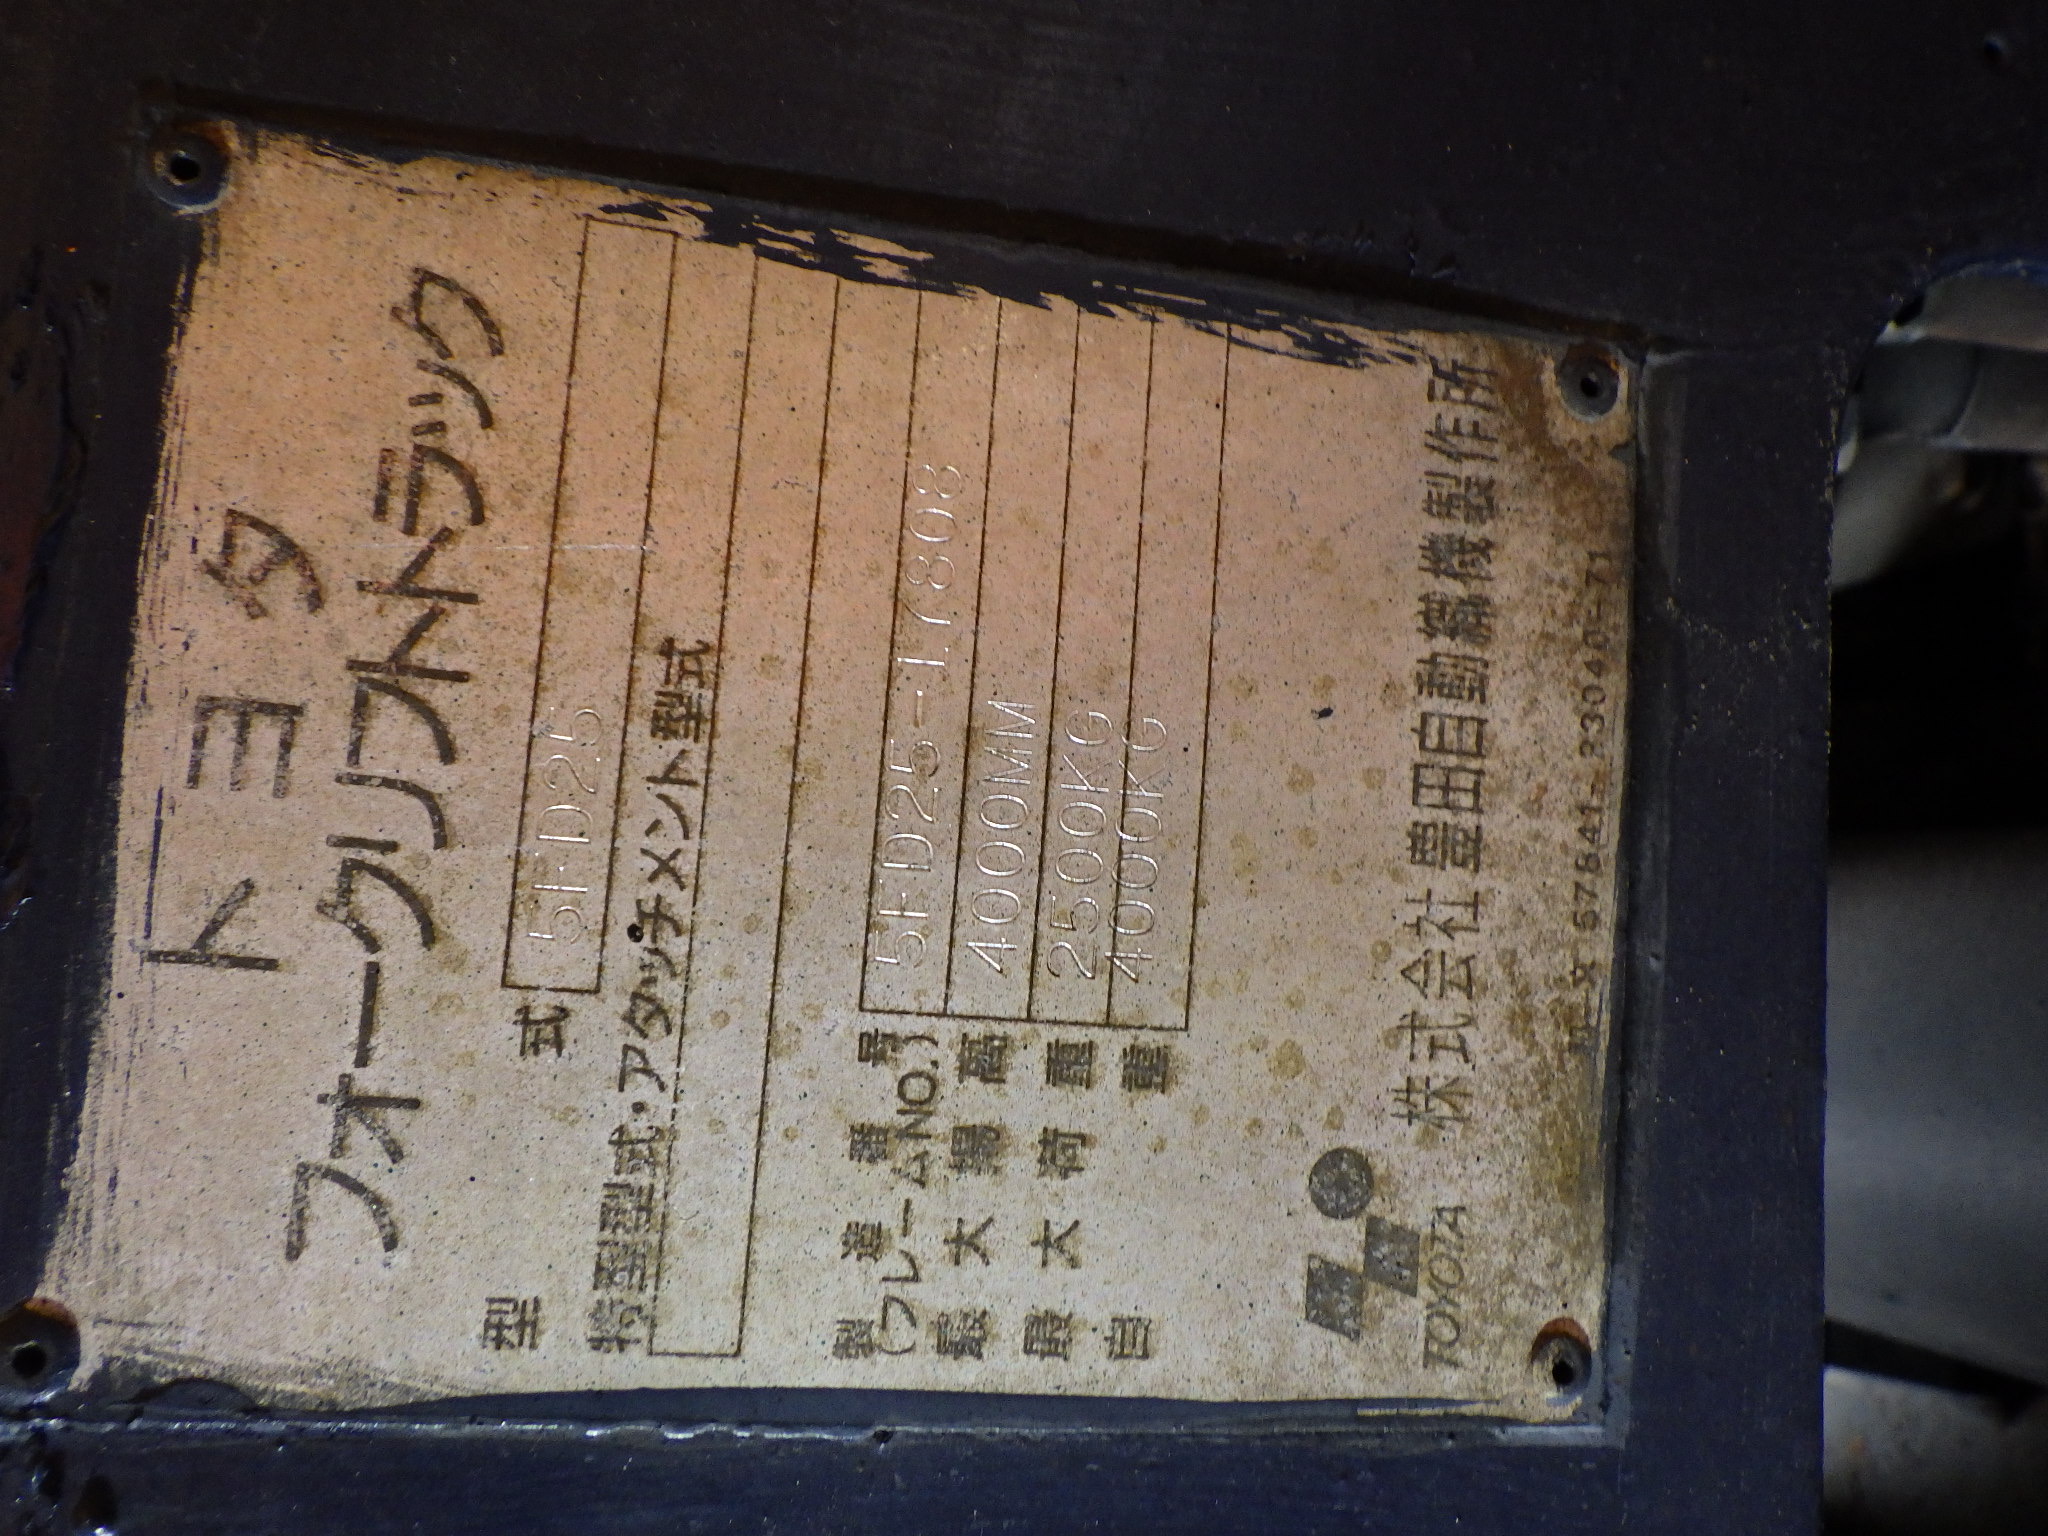 トヨタ
フォークリフトトラック
型式 5FD25
特型型式・アタッチメント型式
製造番号 5FD25-17808
(フレームNO.)
最大揚高 4000MM
最大荷重 2500KG
自重 4000KG
TOYOTA 株式会社豊田自動織機製作所
57841-23040-71